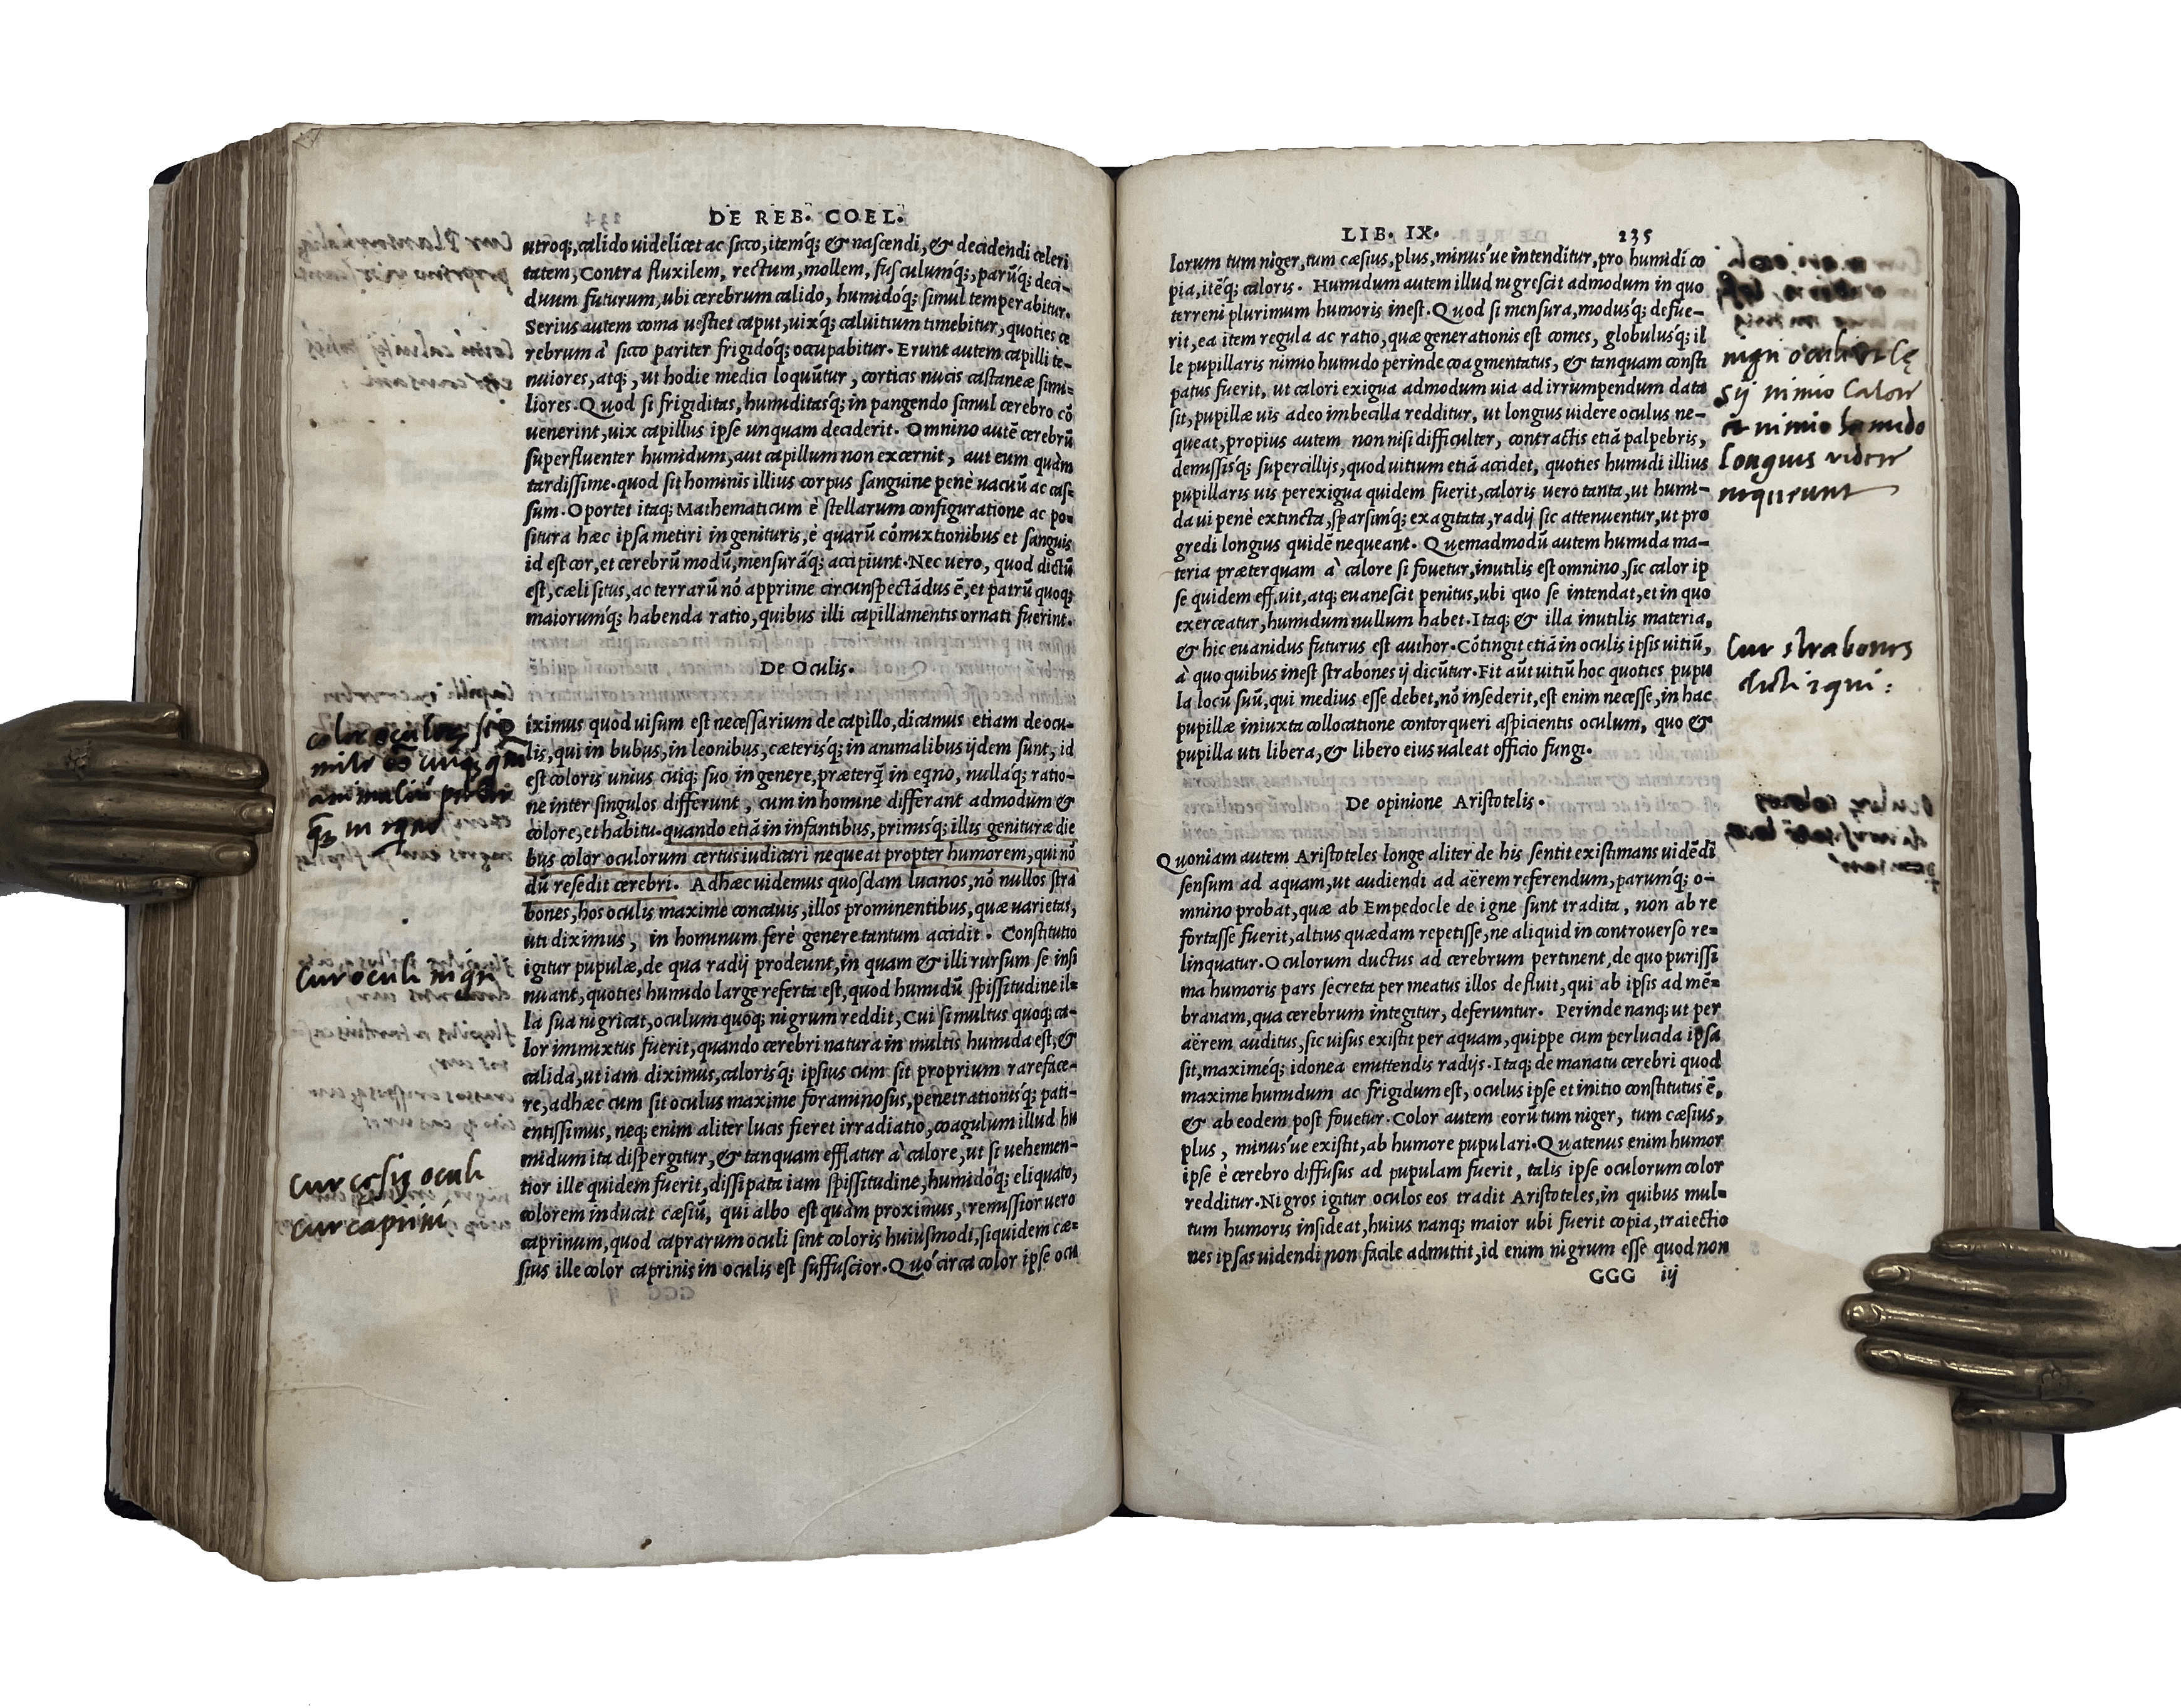 DE REB. COEL.
utroq;, calido uidelicet ac sicco, itemq́; & nascendi, & decidendi celeri
tatem, Contra fluxilem, rectum, mollem, fusculumq́;, parũq́; deci-
duum futurum, ubi cerebrum calido, humidoq́; simul temperabitur.
Serius autem coma uestiet caput, uixq́; caluitium timebitur, quoties ce
rebrum à sicco pariter frigidoq́; occupabitur. Erunt autem capilli te-
nuiores, atq;, ut hodie medici loquũtur, corticis nucis castaneæ simi-
liores. Quod si frigiditas, humiditasq́; in pangendo simul cerebro cõ
uenerint, uix capillus ipse unquam deciderit. Omnino autẽ cerebrũ
superfluenter humidum, aut capillum non excernit, aut eum quàm
tardissime. quod sit hominis illius corpus sanguine penè uacuũ ac cas-
sum. Oportet itaq; Mathematicum è stellarum configuratione ac po-
situra hæc ipsa metiri in genituris, è quarũ cõmixtionibus et sanguis
id est cor, et cerebrũ modũ, mensurãq́; accipiunt. Nec uero, quod dictũ
est, cæli situs, ac terrarũ nõ apprime circunspectãdus ẽ, et patrũ quoq;
maiorumq́; habenda ratio, quibus illi capillamentis ornati fuerint.
De Oculis.
iximus quod uisum est necessarium de capillo, dicamus etiam de ocu-
lis, qui in bubus, in leonibus, cæterisq́; in animalibus ijdem sunt, id
est coloris unius cuiq; suo in genere, præterq̃ in eqno, nullaq́; ratio-
ne inter singulos differunt, cum in homine differant admodum &
colore, et habitu. quando etiã in infantibus, primisq́; illis genituræ die
bus color oculorum certus iudicari nequeat propter humorem, qui nõ
dũ resedit cerebri. Adhæc uidemus quosdam lucinos, nõ nullos stra
bones, hos oculis maxime concauis, illos prominentibus, quæ uarietas,
uti diximus, in hominum ferè genere tantum accidit. Constitutio
igitur pupulæ, de qua radij prodeunt, in quam & illi rursum se insi
nuant, quoties humido large referta est, quod humidũ spissitudine il-
la sua nigricat, oculum quoq; nigrum reddit, Cui si multus quoq; ca-
lor immixtus fuerit, quando cerebri natura in multis humida est, &
calida, ut iam diximus, calorisq́; ipsius cum sit proprium rareface-
re, adhæc cum sit oculus maxime foraminosus, penetrationisq́; pati-
entissimus, neq; enim aliter lucis fieret irradiatio, coagulum illud hu
midum ita dispergitur, & tanquam efflatur à calore, ut si uehemen-
tior ille quidem fuerit, dissipata iam spissitudine, humidoq́; eliquato,
colorem inducat cæsiũ, qui albo est quàm proximus, remissior uero
caprinum, quod caprarum oculi sint coloris huiusmodi, siquidem cæ-
sius ille color caprinis in oculis est suffuscior. Quó circa color ipse ocu
Cur oculi nigri
Cur cęsij oculi
cur caprini
LIB. IX. 235
lorum tum niger, tum cæsius, plus, minus úe intenditur, pro humidi co
pia, itẽq́; caloris. Humidum autem illud nigrescit admodum in quo
terreni plurimum humoris inest. Quod si mensura, modusq́; defue-
rit, ea item regula ac ratio, quæ generationis est comes, globulusq́; il
le pupillaris nimio humido perinde coagmentatus, & tanquam consti
patus fuerit, ut calori exigua admodum uia ad irrumpendum data
sit, pupillæ uis adeo imbecilla redditur, ut longius uidere oculus ne-
queat, propius autem non nisi difficulter, contractis etiã palpebris,
demissisq́; supercilijs, quod uitium etiã accidet, quoties humidi illius
pupillaris uis perexigua quidem fuerit, caloris uero tanta, ut humi-
da ui penè extincta, sparsimq́; exagitata, radij sic attenuentur, ut pro
gredi longius quidẽ nequeant. Quemadmodũ autem humida ma-
teria præterquam à calore si fouetur, inutilis est omnino, sic calor ip
se quidem effluit, atq; euanescit penitus, ubi quo se intendat, et in quo
exerceatur, humidum nullum habet. Itaq; & illa inutilis materia,
& hic euanidus futurus est author. Cõtingit etiã in oculis ipsis uitiũ,
à quo quibus inest strabones ij dicũtur. Fit aũt uitiũ hoc quoties pupu
la locũ suũ, qui medius esse debet, nõ insederit, est enim necesse, in hac
pupillæ iniuxta collocatione contorqueri aspicientis oculum, quo &
pupilla uti libera, & libero eius ualeat officio fungi.
De opinione Aristotelis.
Quoniam autem Aristoteles longe aliter de his sentit existimans uidẽdi
sensum ad aquam, ut audiendi ad aërem referendum, parumq́; o-
mnino probat, quæ ab Empedocle de igne sunt tradita, non ab re
fortasse fuerit, altius quædam repetisse, ne aliquid in controuerso re-
linquatur. Oculorum ductus ad cerebrum pertinent, de quo purissi
ma humoris pars secreta per meatus illos defluit, qui ab ipsis ad mẽ-
branam, qua cerebrum integitur, deferuntur. Perinde nanq; ut per
aërem auditus, sic uisus existit per aquam, quippe cum perlucida ipsa
sit, maximeq́; idonea emittendis radijs. Itaq; de manatu cerebri quod
maxime humidum ac frigidum est, oculus ipse et initio constitutus ẽ,
& ab eodem post fouetur. Color autem eorũ tum niger, tum cæsius,
plus, minus úe existit, ab humore pupulari. Quatenus enim humor
ipse è cerebro diffusus ad pupulam fuerit, talis ipse oculorum color
redditur. Nigros igitur oculos eos tradit Aristoteles, in quibus mul-
tum humoris insideat, huius nanq; maior ubi fuerit copia, traiectio
nes ipsas uidendi non facile admittit, id enim nigrum esse quod non
GGG iij
nigri oculi et cę
sij nimio calore
et nimio humido
longius videre
nequeunt
Cur strabones
dicti equi: